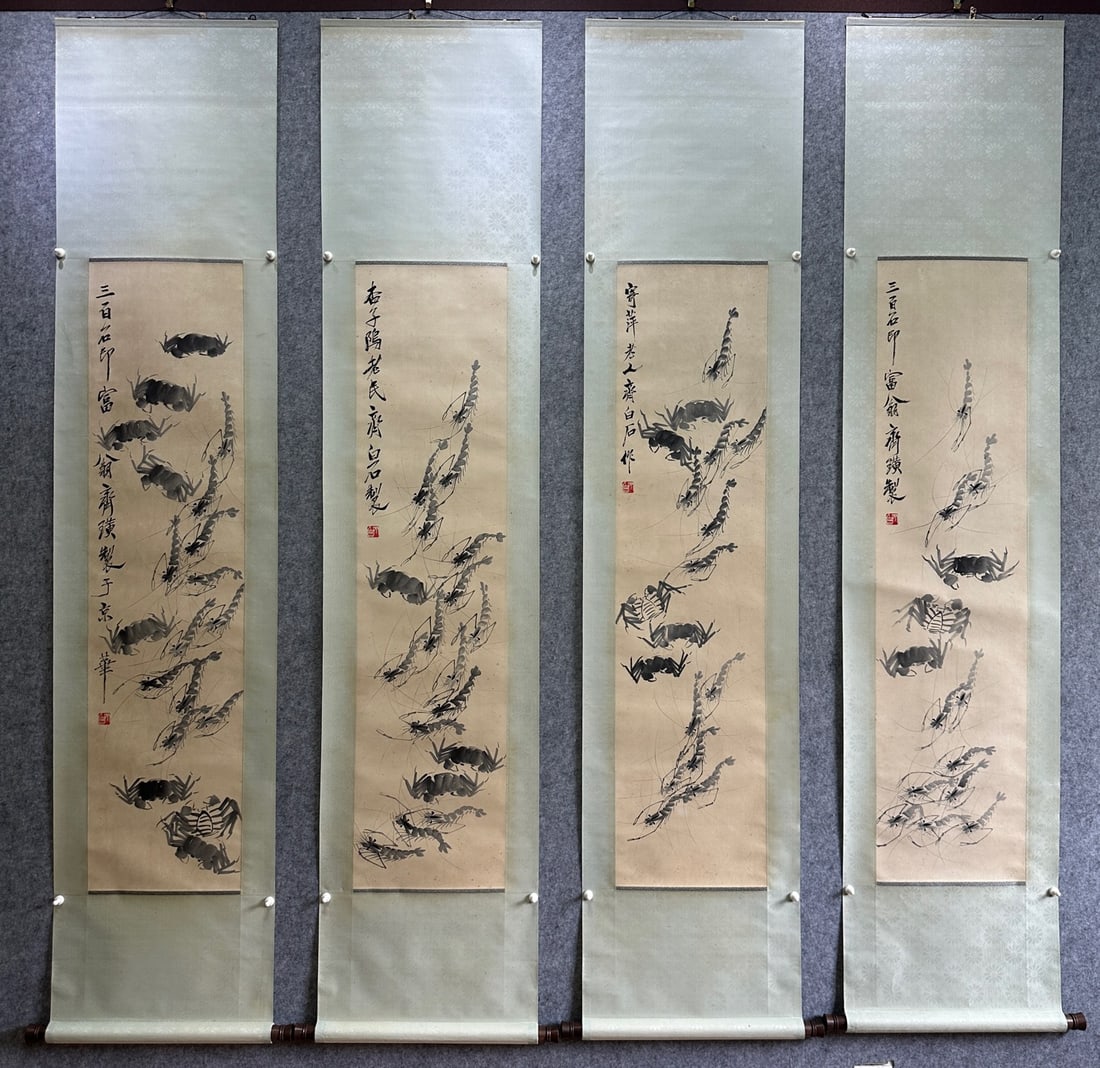 三百石印富翁齊璜製于京華
杏子隖老民齊白石製
寄萍老人齊白石作
三百石印富翁齊璜製